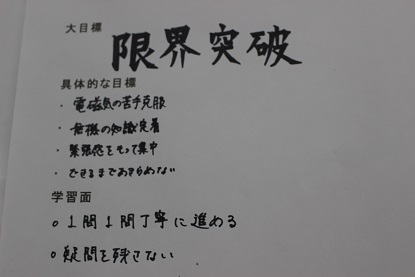 大目標
限界突破
具体的な目標
・電磁気の苦手克服
・危機の知識定着
・緊張感をもって集中
・できるまであきらめない
学習面
○1問1問丁寧に進める
○疑問を残さない